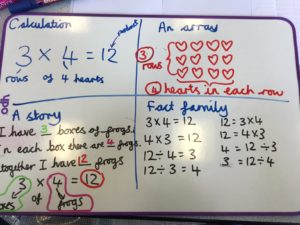 Calculation
numbers
3 × 4 = 12
rows of 4 hearts
An array
3
rows
4 hearts in each row
A story
I have 3 boxes of frogs.
in each box there are 4 frogs
together I have 12 frogs
3 × 4 = 12
boxes of frogs
Fact family
3×4=12 12=3×4
4×3=12 12=4×3
12÷4=3 4=12÷3
12÷3=4 3=12÷4